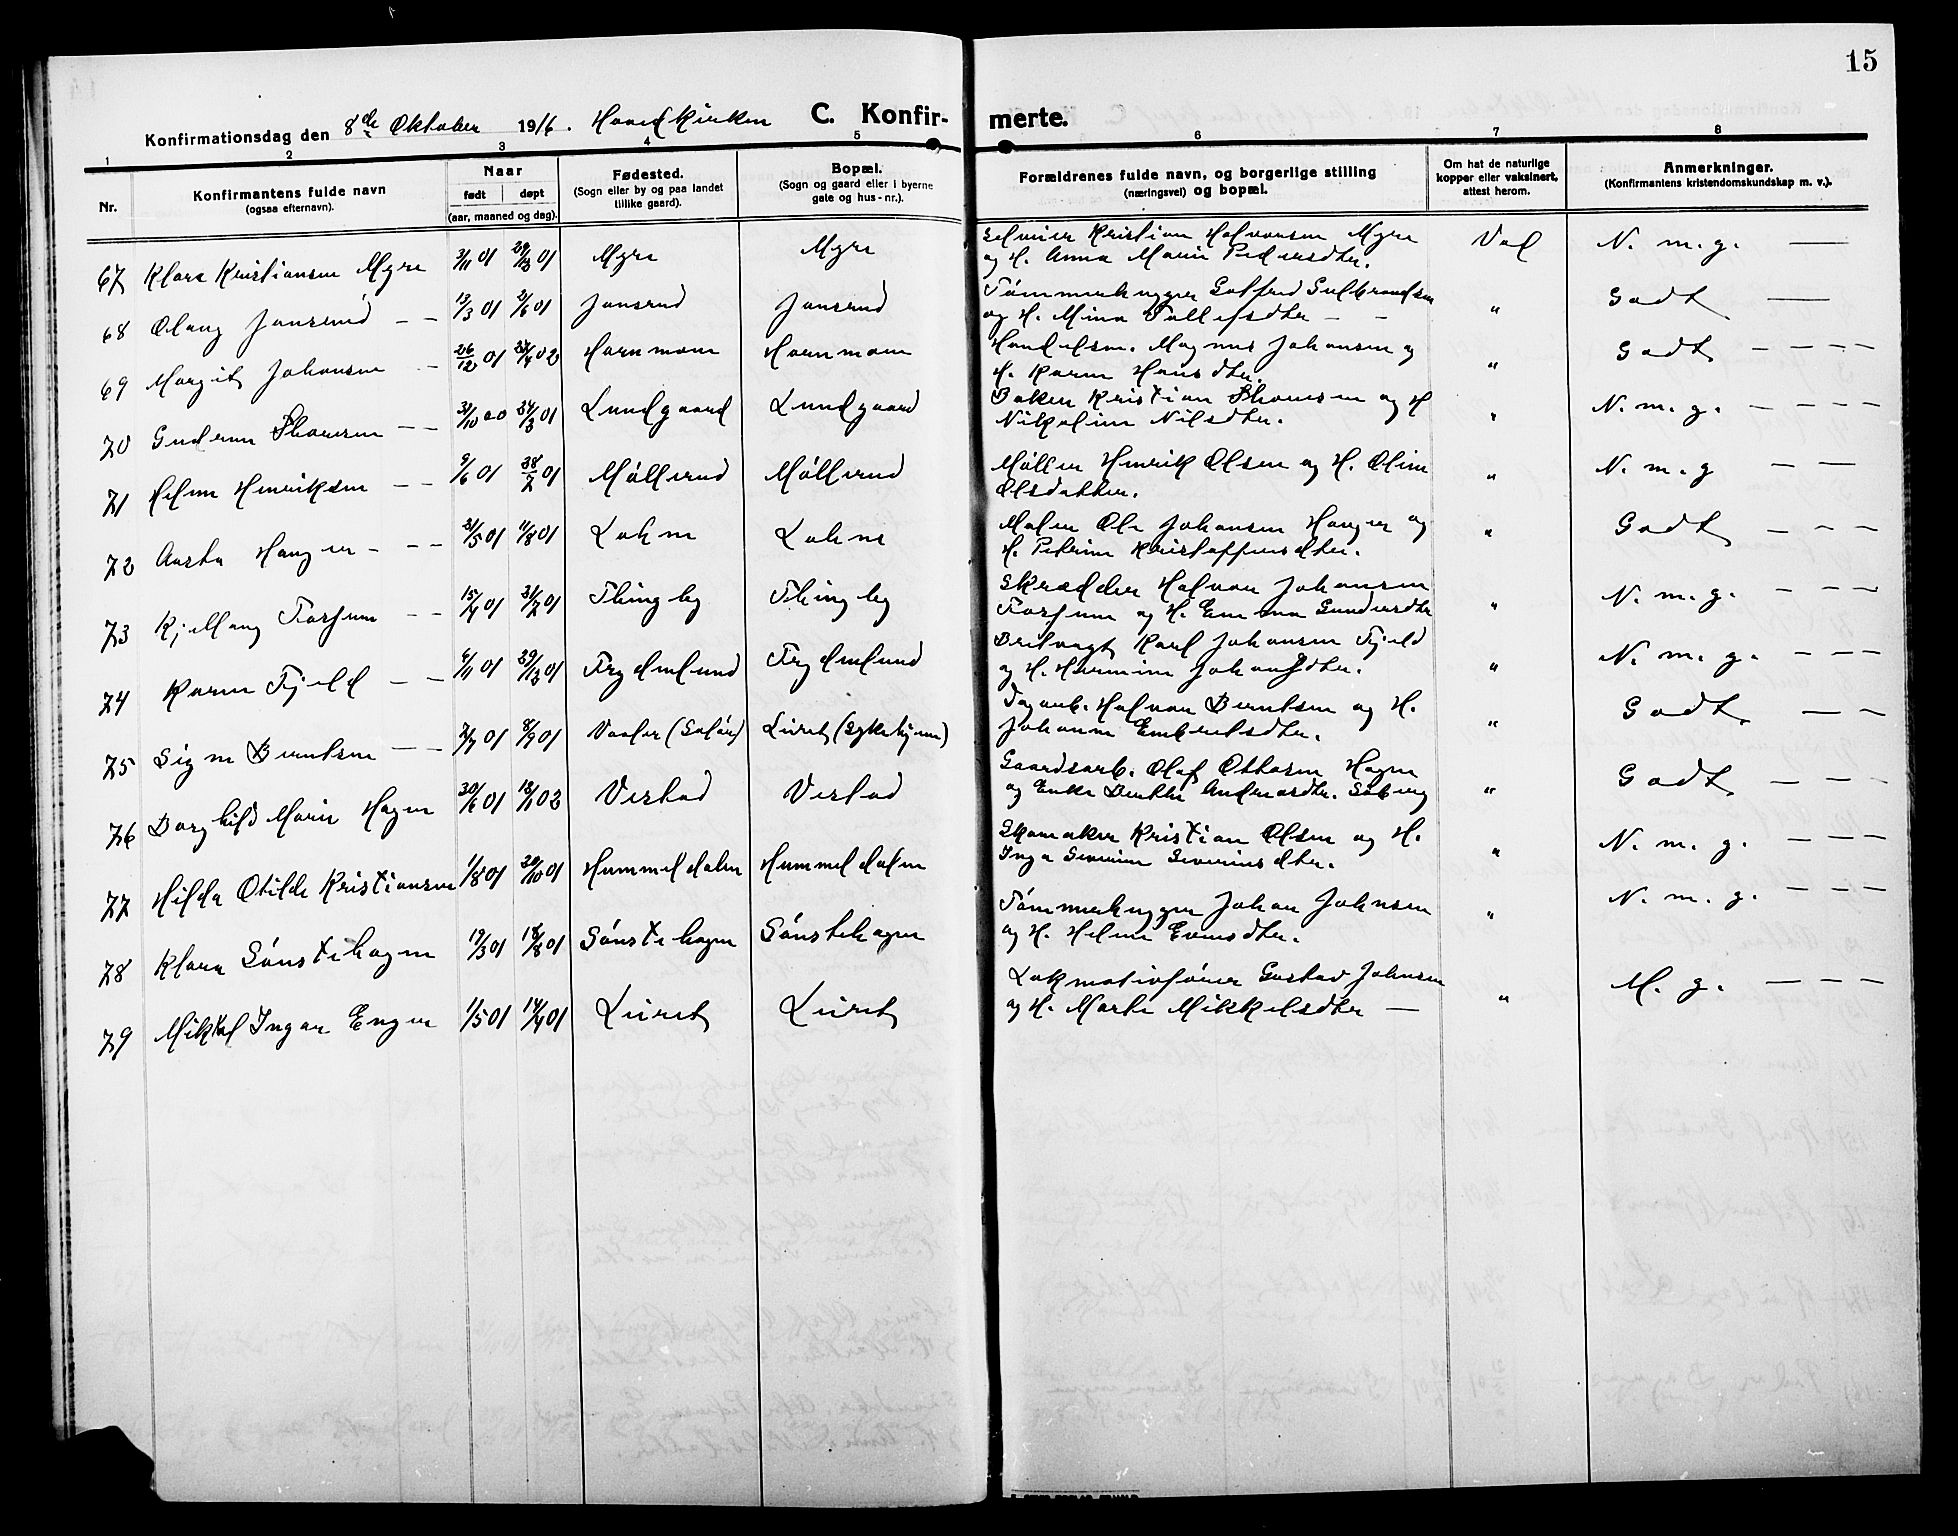 15
Konfirmationsdag den 8de Oktober 1916. Hovedkirken C. Konfirmerte.
1 2 3 4 5 6 7 8
Nr.
Konfirmantens fulde navn
(ogsaa efternavn).
Naar
født døpt
(aar, maaned og dag).
Fødested.
(Sogn eller by og paa landet
tillike gaard).
Bopæl.
(Sogn og gaard eller i byerne
gate og hus-nr.).
Forældrenes fulde navn, og borgerlige stilling
(næringsvei) og bopæl.
Om hat de naturlige
kopper eller vaksinert,
attest herom.
Anmerkninger.
(Konfirmantens kristendomskundskap m. v.).
67 Klara Kristiansen Myre 01 29/12 01 Myre Myre Selveier Kristian Halvorsen Myre Vac N. m. g. —
og H. Anna Marie Pedersdtr.
68 Olaug Jansrud — — 13/3 01 2/6 01 Jansrud Jansrud Tømmerhugger Gotfred Gulbrandsen " Godt —
og H. Mina Tollefsdtr — -
69 Margit Johansen - 26/12 01 02 Hornmoen Hornmoen Handelsm. Magnus Johansen og " Godt — — — —
H. Karen Hansdtr.
70 Gudrun Thoresen — — 00 24/3 01 Lundgaard Lundgaard Baker Kristian Thoresen og H " N. m. g. — — — —
Nikoline Nilsdtr.
71 Helene Henriksen — — 9/6 01 28/7 01 Møllerud Møllerud Møller Henrik Olsen og H. Oline " N. m. g — —
Olsdatter.
72 Aasta Hanger - — — 01 11/8 01 Lohne Lohne Maler Ole Johansen Hanger og " Godt — — —
H. Petrine Kristoffersdtr.
73 Kjellaug Fossum — — 15/4 01 01 Thingby Thingby Skrædder Halvor Johansen " N. m. g. — — —
Fossum og H. Emma Gundersdtr
74 Karen Fjeld — — 6/11 01 29/12 01 Frydenlund Frydenlund Brevragt Karl Johansen Fjeld " N. m. g. — — —
og H. Hermine Johansdtr.
75 Signe Berntsen — — 2/7 01 8/9 01 Vaaler (Solør) Leiret (Sykehjem) Dagarb. Halvor Berntsen og H. " Godt — —
Johanne Embretsdtr.
76 Borghild Marie Hagen 30/6 01 02 Vestad Vestad Gaardsarb. Olaf Ottosen Hagen " Godt — — —
og Enke Berthe Andreasdtr. Søberg
77 Hilda Otilde Kristiansen 1/8 01 20/10 01 Hummeldalen Hummeldalen Skomaker Kristian Olsen og H. " N. m. g. — — —
Inga Severine Severinsdtr.
78 Klara Sønstehagen 19/3 01 18/8 01 Sønstehagen Sønstehagen Tømmerhugger Johan Johnsen " N. m. g. — — —
og H. Helene Evensdtr.
79 Mikkel Ingar Enger 1/5 01 14/7 01 Leiret Leiret Lokmotivfører Gustav Johnsen " M. g. — — —
og H. Marte Mikkelsdtr —